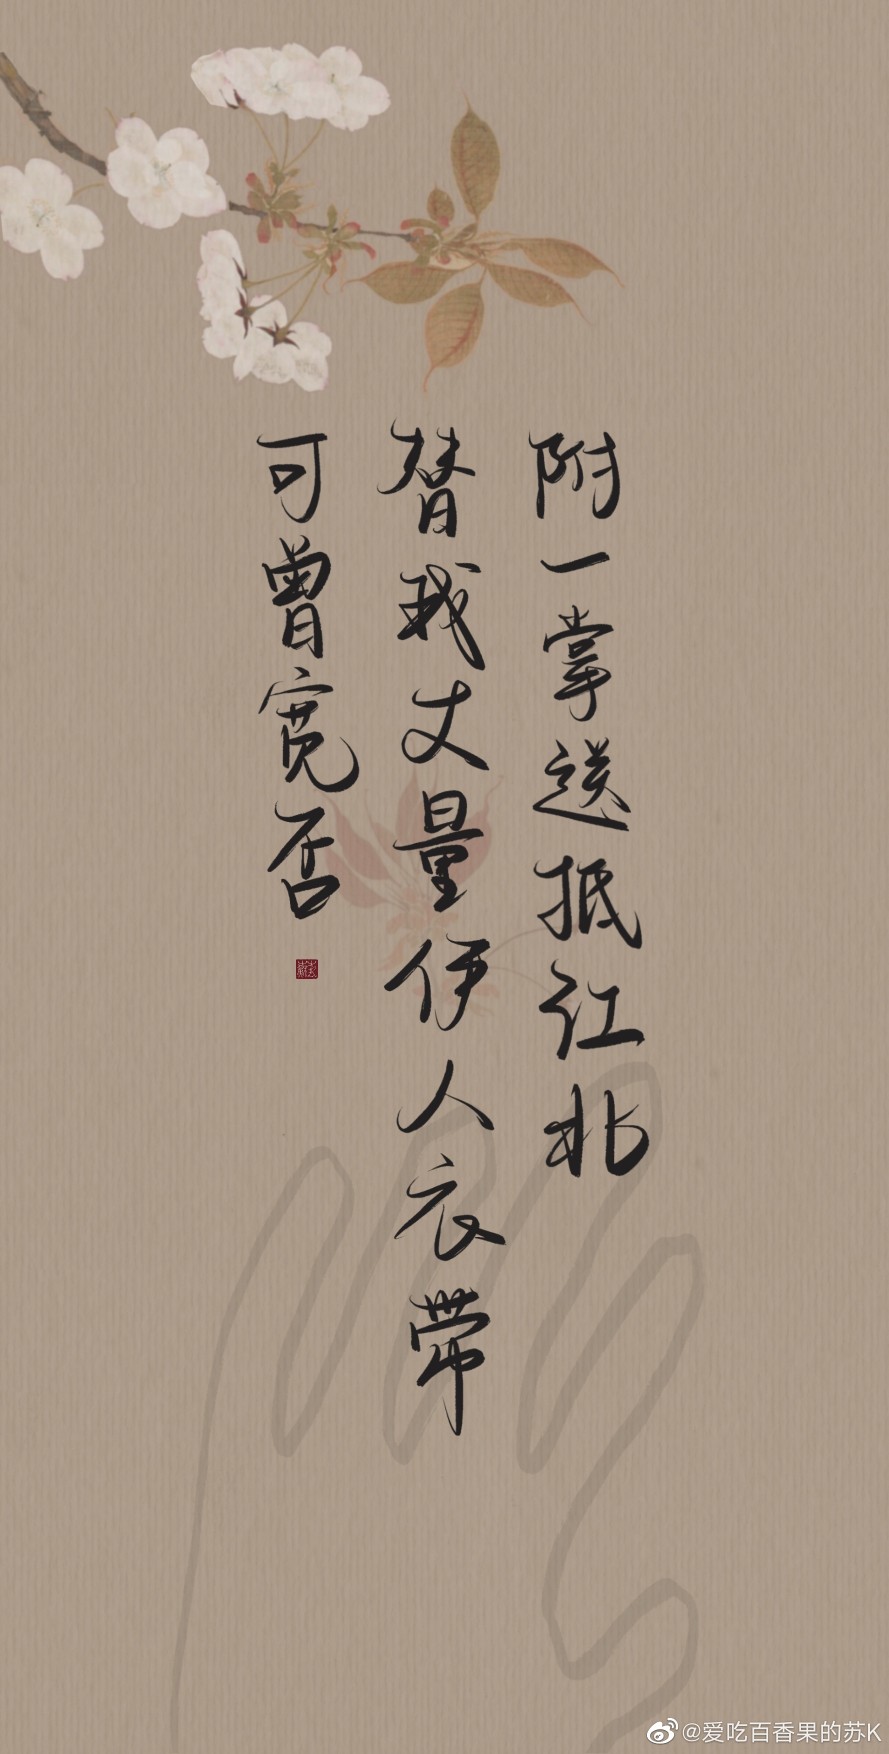 附一掌送抵江北
替我丈量伊人衣带
可曾宽否
@爱吃百香果的苏K